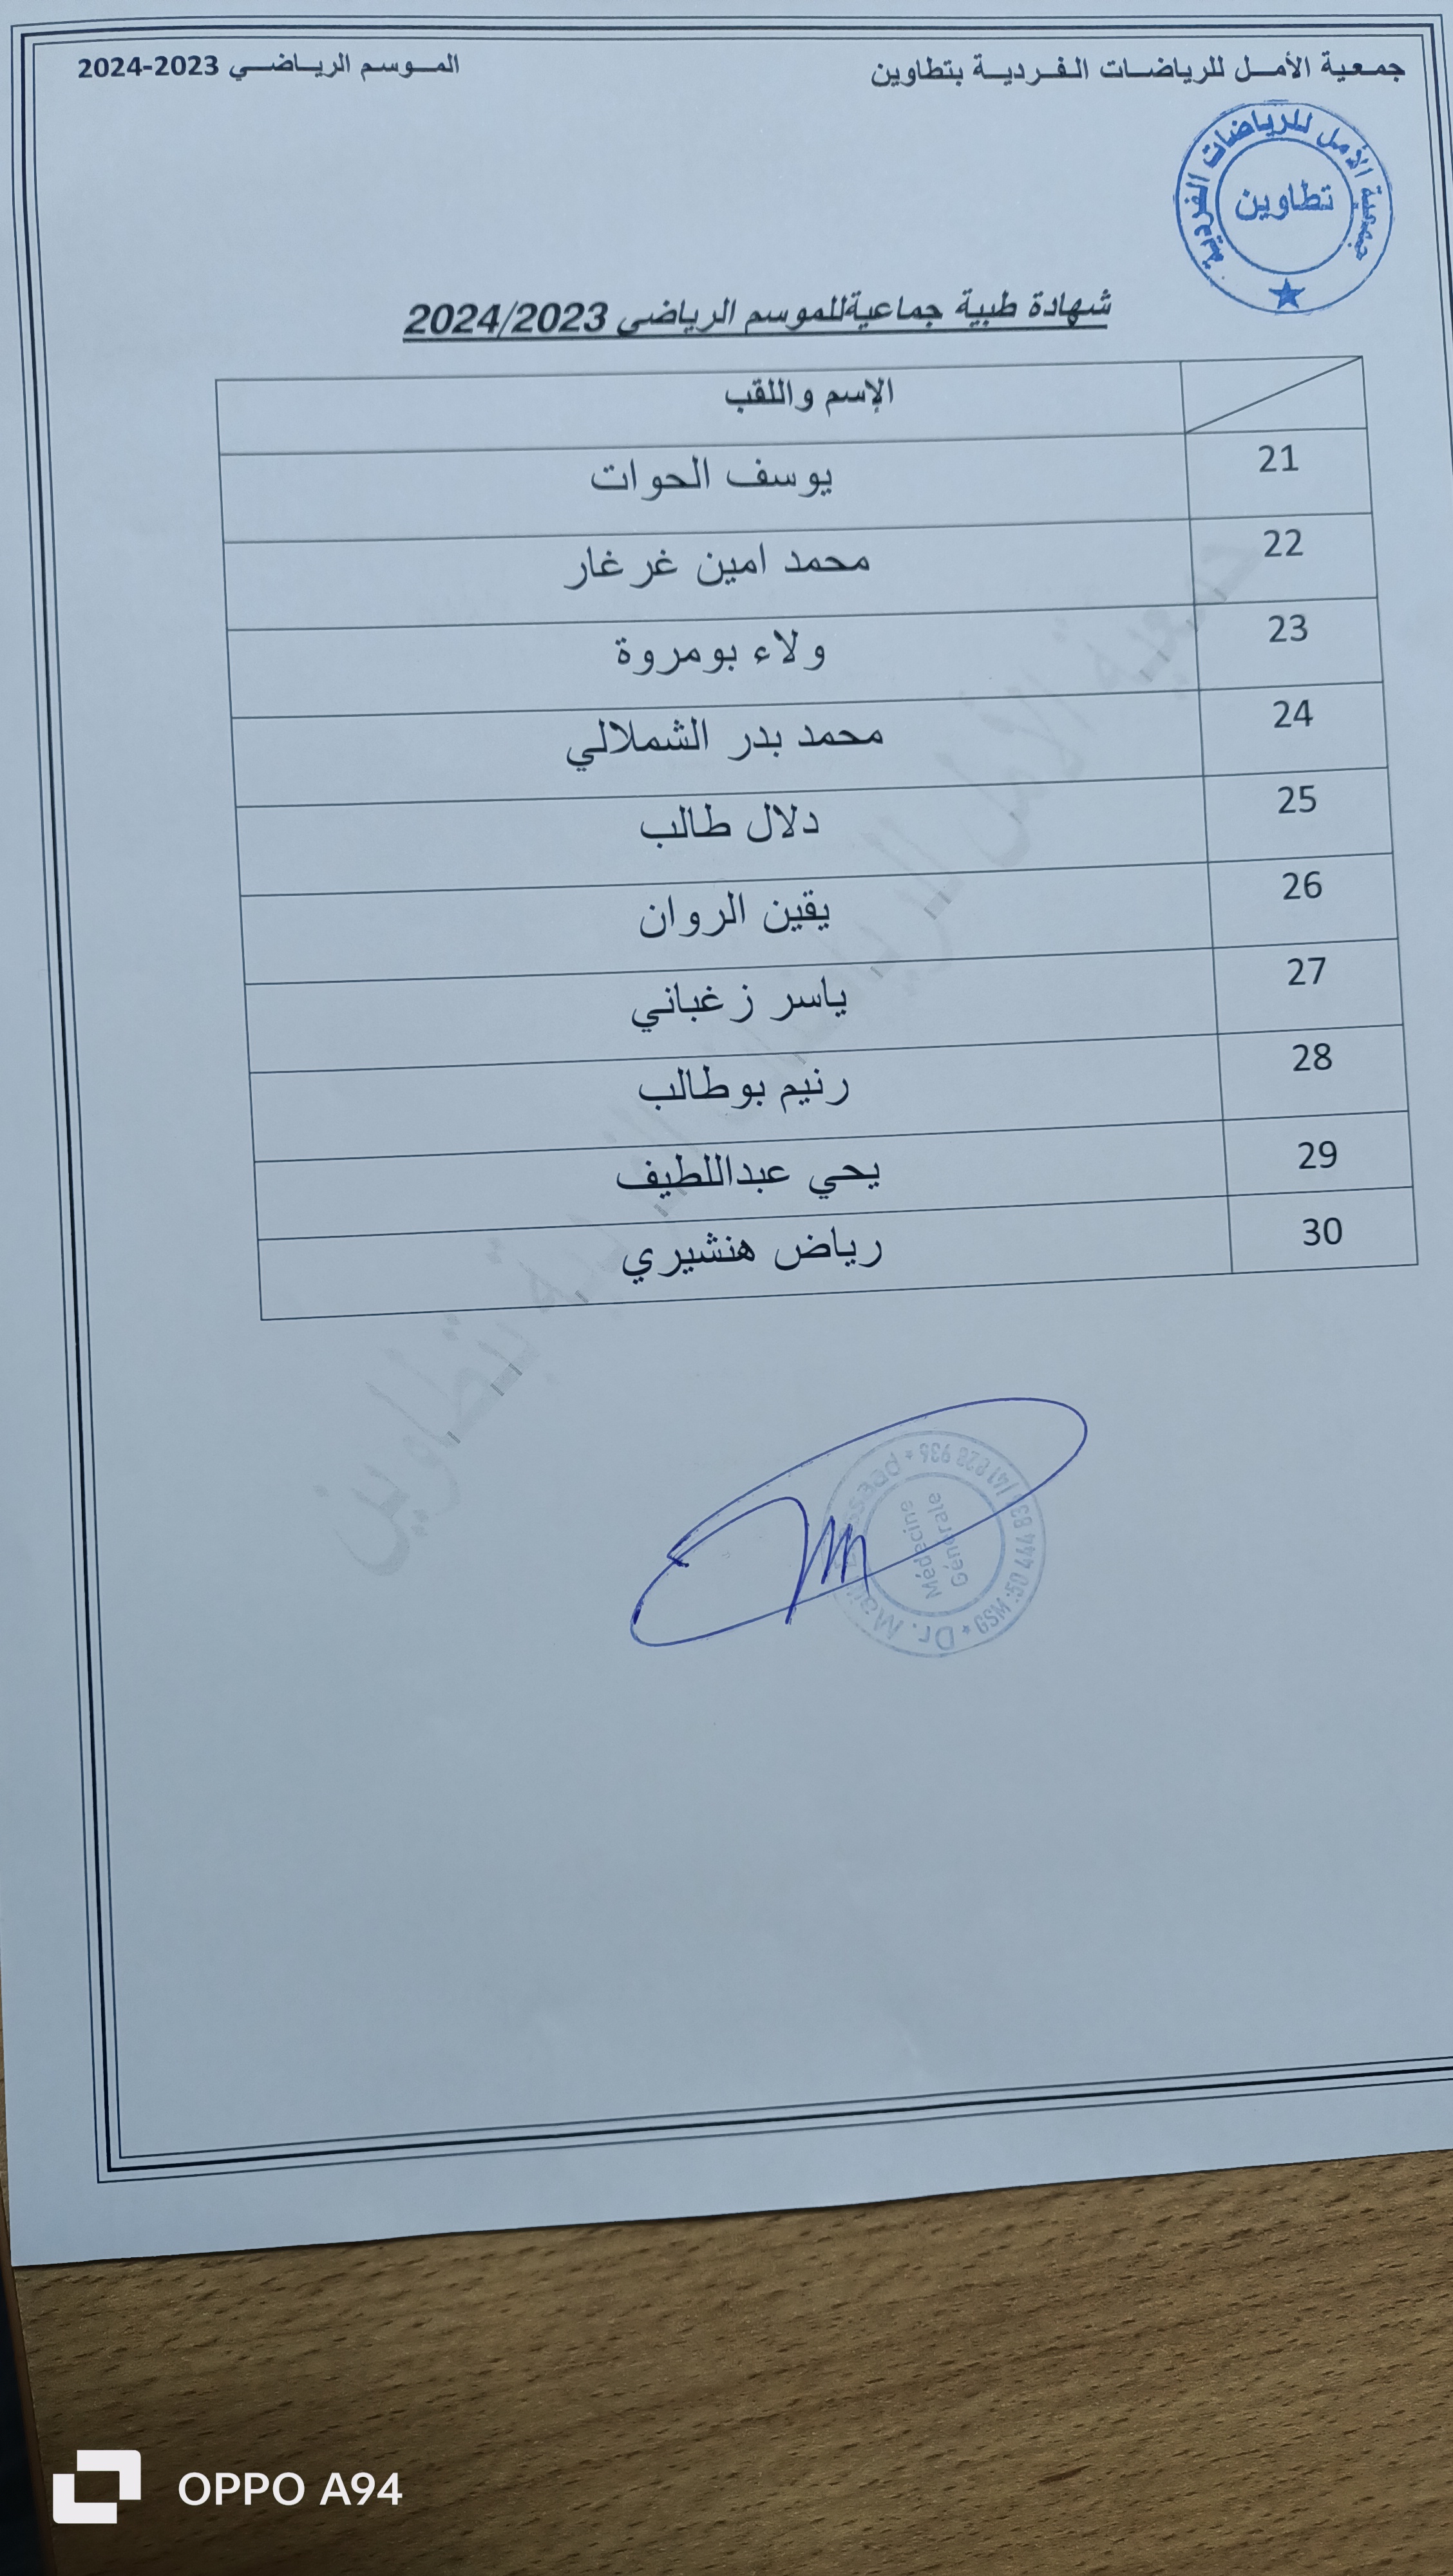 جمعية الأمل للرياضات الفردية بتطاوين
الموسم الرياضي 2023-2024
جمعية الأمل للرياضات الفردية
تطاوين
شهادة طبية جماعيةللموسم الرياضي 2024/2023
الإسم واللقب
21 يوسف الحوات
22 محمد امين غرغار
23 ولاء بومروة
24 محمد بدر الشملالي
25 دلال طالب
26 يقين الروان
27 ياسر زغباني
28 رنيم بوطالب
29 يحي عبداللطيف
30 رياض هنشيري
جمعية الأمل للرياضات الفردية بتطاوين
Dr.
Médecine
Générale
GSM :50 444 83
OPPO A94